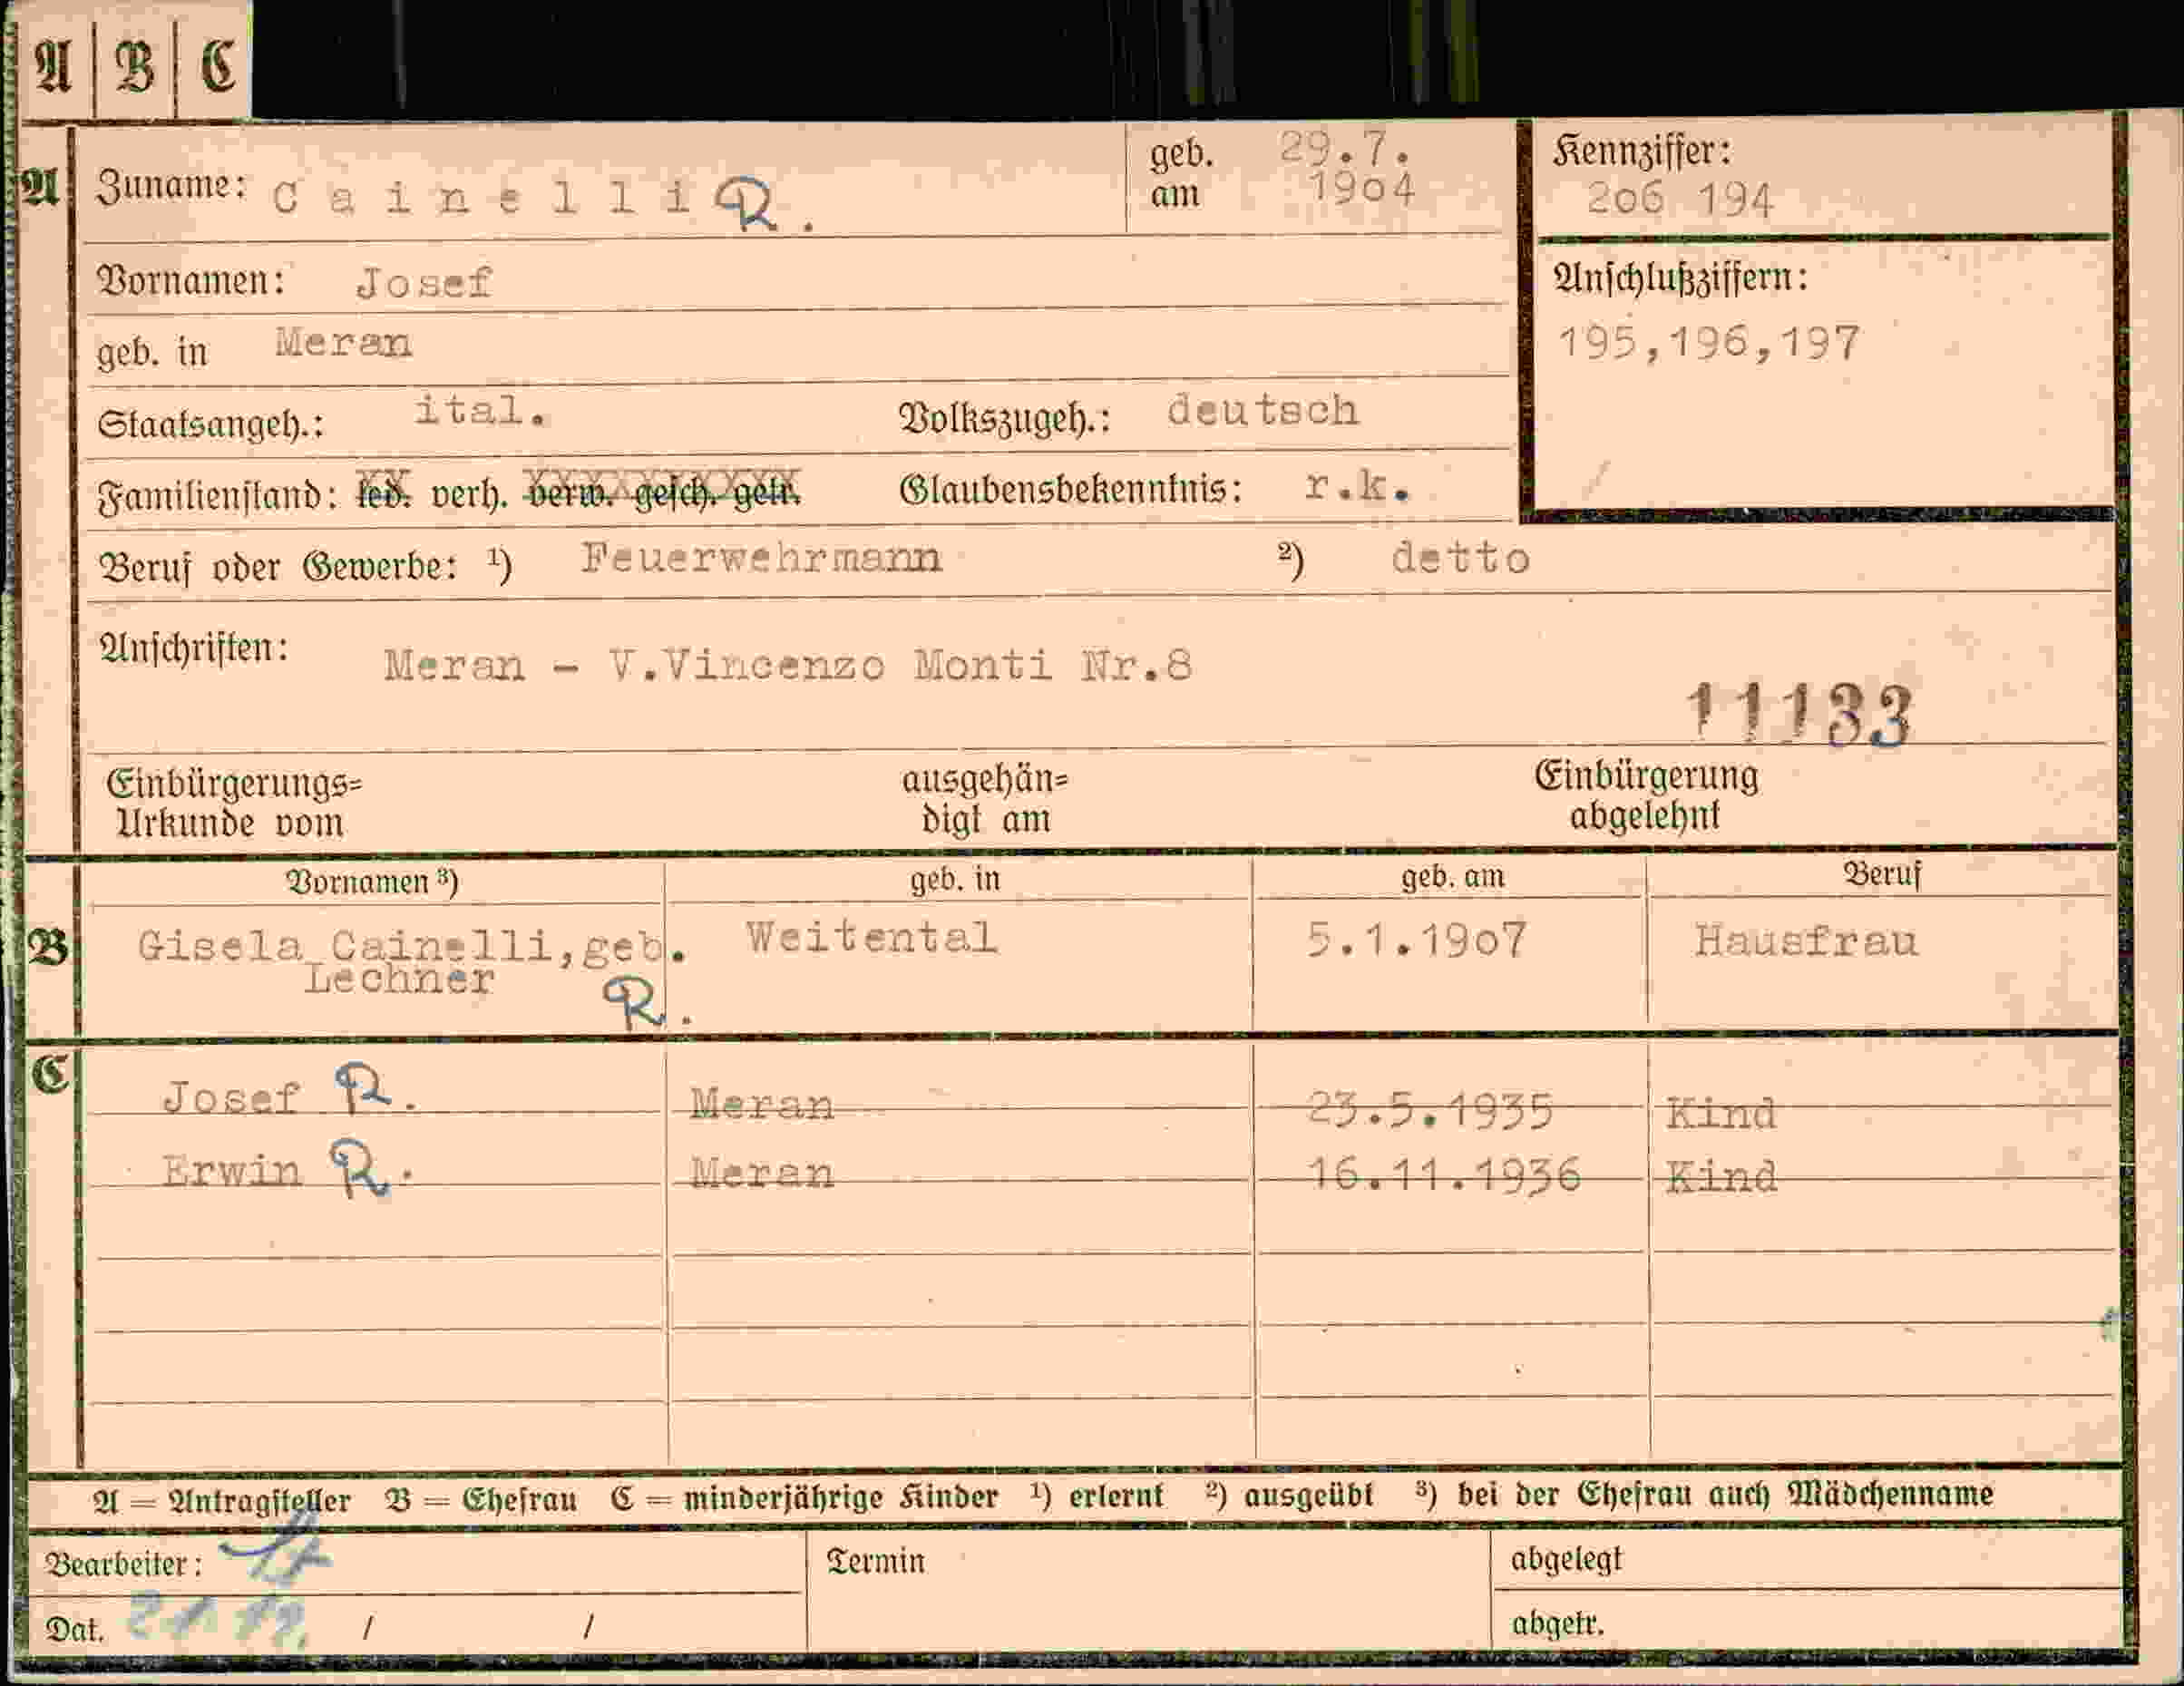 A | B | C
A Zuname: Cainelli R. geb. am 29.7. 1904
Kennziffer: 206 194
Vornamen: Josef
Anschlußziffern: 195,196,197
geb. in Meran
Staatsangeh.: ital. Volkszugeh.: deutsch
Familienstand: led. verh. verw. gesch. getr. Glaubensbekenntnis: r.k.
Beruf oder Gewerbe: ¹) Feuerwehrmann ²) detto
Anschriften: Meran - V.Vincenzo Monti Nr.8
11133
Einbürgerungs= ausgehän= Einbürgerung
Urkunde vom digt am abgelehnt
Vornamen ³) geb. in geb. am Beruf
B Gisela Cainelli,geb. Weitental 5.1.1907 Hausfrau
Lechner R.
C Josef R. Meran 23.5.1935 Kind
Erwin R. Meran 16.11.1936 Kind
A = Antragsteller B = Ehefrau C = minderjährige Kinder ¹) erlernt ²) ausgeübt ³) bei der Ehefrau auch Mädchenname
Bearbeiter: Termin abgelegt
Dat. / / abgetr.